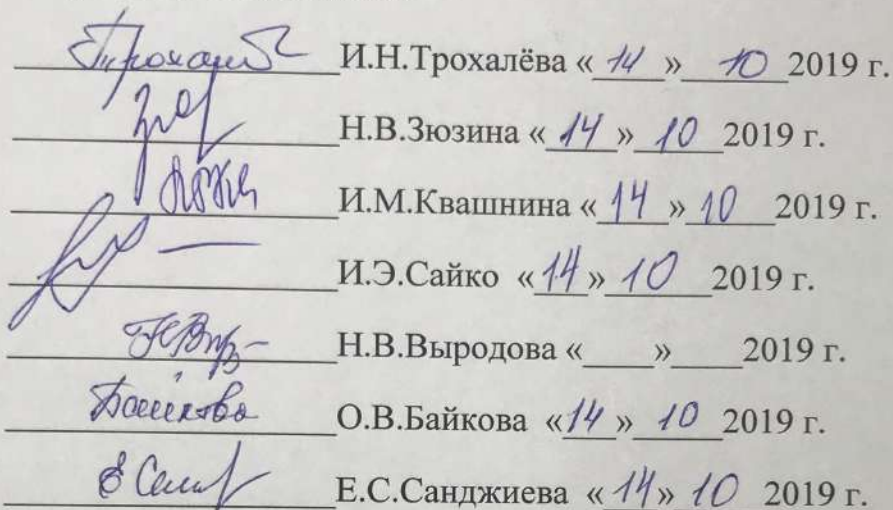 И.Н.Трохалёва «14» 10 2019 г.
Н.В.Зюзина «14» 10 2019 г.
И.М.Квашнина «14» 10 2019 г.
И.Э.Сайко «14» 10 2019 г.
Н.В.Выродова «____» ____2019 г.
Байкова О.В.Байкова «14» 10 2019 г.
Е.С.Санджиева «14» 10 2019 г.